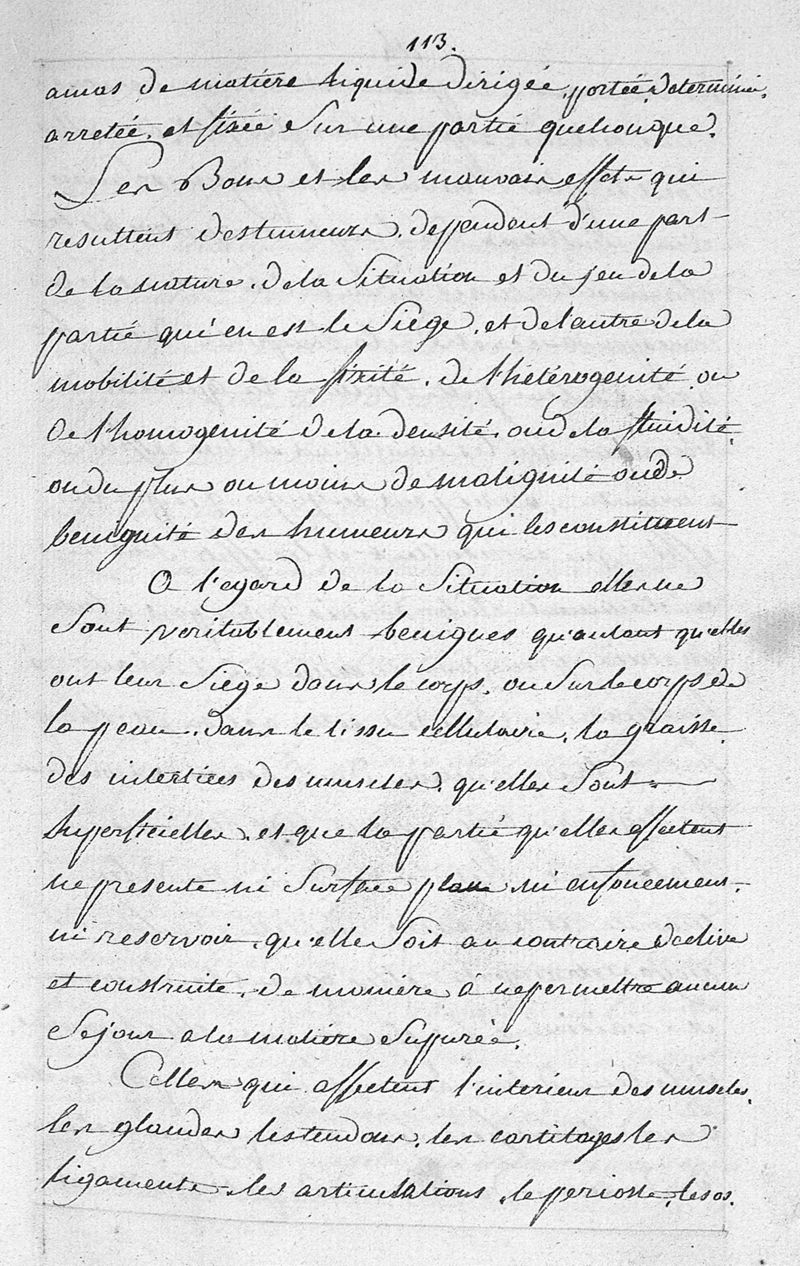 113.
amas de matiére liquide dirigée, portée, determinée,
arretée, et fixée Sur une partie quelconque.
Les Bons et les mauvais effets qui
resultent des tumeurs, dependent d'une part
de la nature, de la Situation et du jeu de la
partie qui en est le Siége, et de l'autre de la
mobilité et de la fixité, de l'hétérogenité, ou
de l'homogenité de la densité, ou de la fluidité
ou du plus ou moins de malignité ou de
benignité des humeurs qui les constituent
A l'egard de la Situation elles ne
Sont veritablement benignes qu'autant qu'elles
ont leur Siége dans le corps, ou Sur le corps de
la peau, dans le tissu cellulaire, la graisse
des intertices des muscles, qu'elles Sont
Superficielles, et que la partie qu'elles affectent
ne presente ni Surface plane ni enfoncement,
ni reservoir, qu'elle Soit au contraire declive
et construite, de moniere à ne permettre aucun
Sejour a la matiere Supurée.
Celles qui affectent l'interieur des muscles,
les glandes les tendons, les cartilages les
ligaments, les articulations, le perioste, les os.